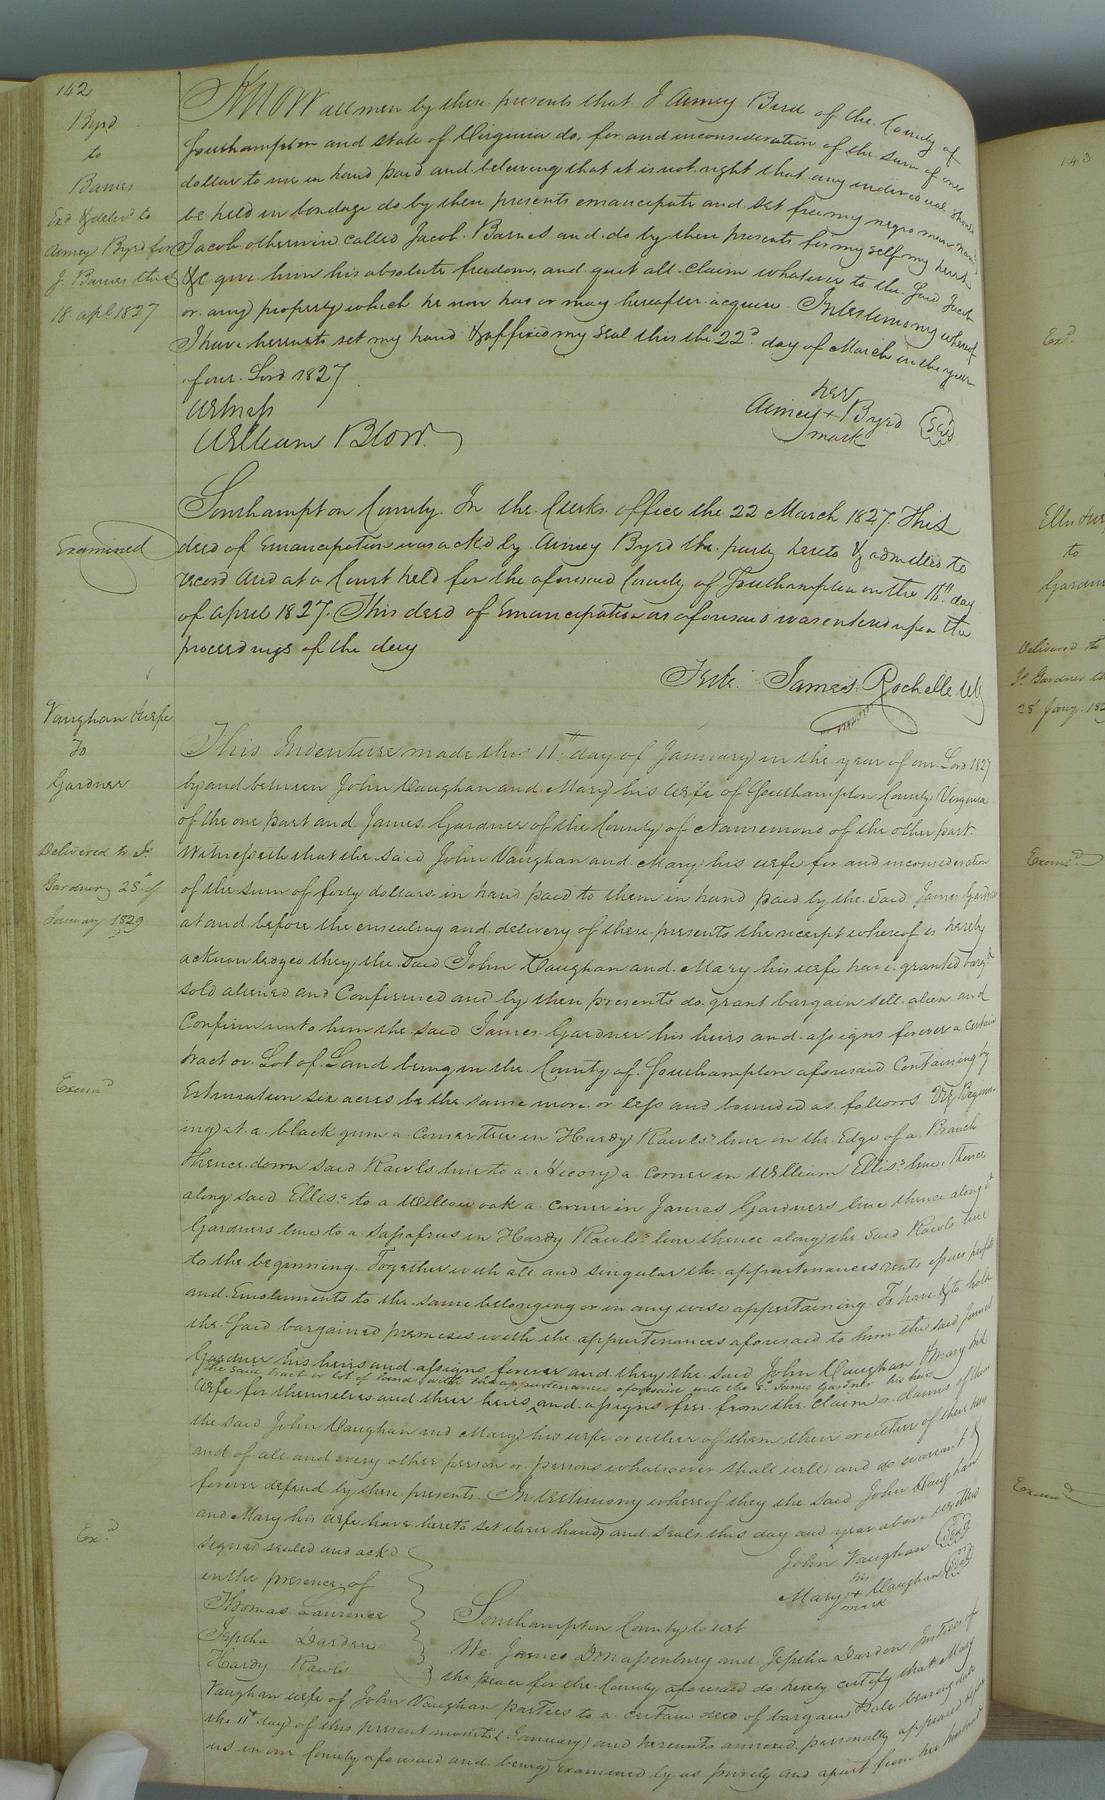 142
Byrd
to
Barnes
Exd & delivd to
Aimey Byrd for
J. Barnes this
18 apl 1827
Know all men by these presents that I Aimey Byrd of the County of
Southampton and State of Virginia do, for and inconsideration of the sum of one
dollar to me in hand paid and believing that it is not right that any individual should
be held in bondage do by these presents emancipate and set free my negro man named
Jacob otherwise called Jacob Barnes and do by these presents for my self my heirs
&c give him his absolute freedom, and quit all claim whatever to the said Jacob
or any property which he now has or may hereafter acquire. Intestimony whereof
I have hereunto set my hand & affixed my seal this the 22d day of March in the year
of our Lord 1827
Witness
William Blow.
her
Aimey + Byrd
mark
Seal
Examined
Southampton County. In the Clerks office the 22 March 1827. This
deed of Emancipation was ackd by Aimey Byrd the party hereto & admitted to
record And at a Court held for the aforesaid County of Southampton on the day
of April 1827. This deed of Emancipation as aforesaid was entered upon the
proceedings of the day
Teste. James Rochelle Clk
Vaughan & wife
To
Gardner
Delivered to Js
Gardner 28th of
January 1829
Examd
Exd
This Indenture made this 11th day of January in the year of our Lord 1827
by and between John Vaughan and Mary his wife of Southampton County Virginia
of the one part and James Gardner of the County of Nansemond of the other part
Witnesseth that the said John Vaughan and Mary his wife for and inconsideration
of the sum of forty dollars in hand paid to them in hand paid by the said James Gardner
at and before the ensealing and delivery of these presents the receipt whereof is hereby
acknowledged they the said John Vaughan and Mary his wife have granted bargd
sold aliened and Confirmed and by these presents do grant bargain sell alien and
Confirm unto him the said James Gardner his heirs and assigns forever a certain
tract or Lot of Land being in the County of Southampton aforesaid Containing by
Estimation six acres be the same more or less and bounded as follows Viz Beginn
ing at a black gum a corner tree in Hardy Rawls' line on the Edge of a Branch
thence down said Rawls line to a Hicory a corner in William Ellis's line, thence
along said Ellis's to a Willow oak a corner in James Gardners line thence along sd
Gardners line to a Sasafras in Hardy Rawls' line thence along the said Rawls line
to the beginning. Together with all and singular the appurtenances rents issues profits
and Emoluments to the same belonging or in any wise appertaining. To have & to hold
the said bargained premises with the appurtenances aforesaid to him the said James
Gardner his heirs and assigns forever and they the said John Vaughan & Mary his
the said tract or lot of land with the appurtenances aforesaid unto the sd James Gardner his heirs
wife for themselves and their heirs and assigns free from the claim or claims of them
the said John Vaughan and Mary his wife or either of them their or either of their heirs
and of all and every other person or persons whatsoever shall will and do warrant &
forever defend by these presents. In testimony whereof they the said John Vaughan
and Mary his wife have hereto set their hands and seals this day and year above written
signed sealed and ackd
in the presence of
Thomas Laurence
Jeptha Darden
Hardy Rawls
John Vaughan Seal
her
Mary + Vaughan Seal
mark
Southampton County to wit
We James and Jeptha Darden Justices of
the peace for the County aforesaid do hereby certify that Mary
Vaughan wife of John Vaughan parties to a certain deed of bargain & sale bearing date
the 11th day of this present month (January) and hereunto annexed personally appeared before
us in our County aforesaid and being examined by us privily and apart from her husband
143
Exd.
Ellis &
to
Gardner
Delivered to
Js Gardner
28 Jany. 182
Examd
Examd